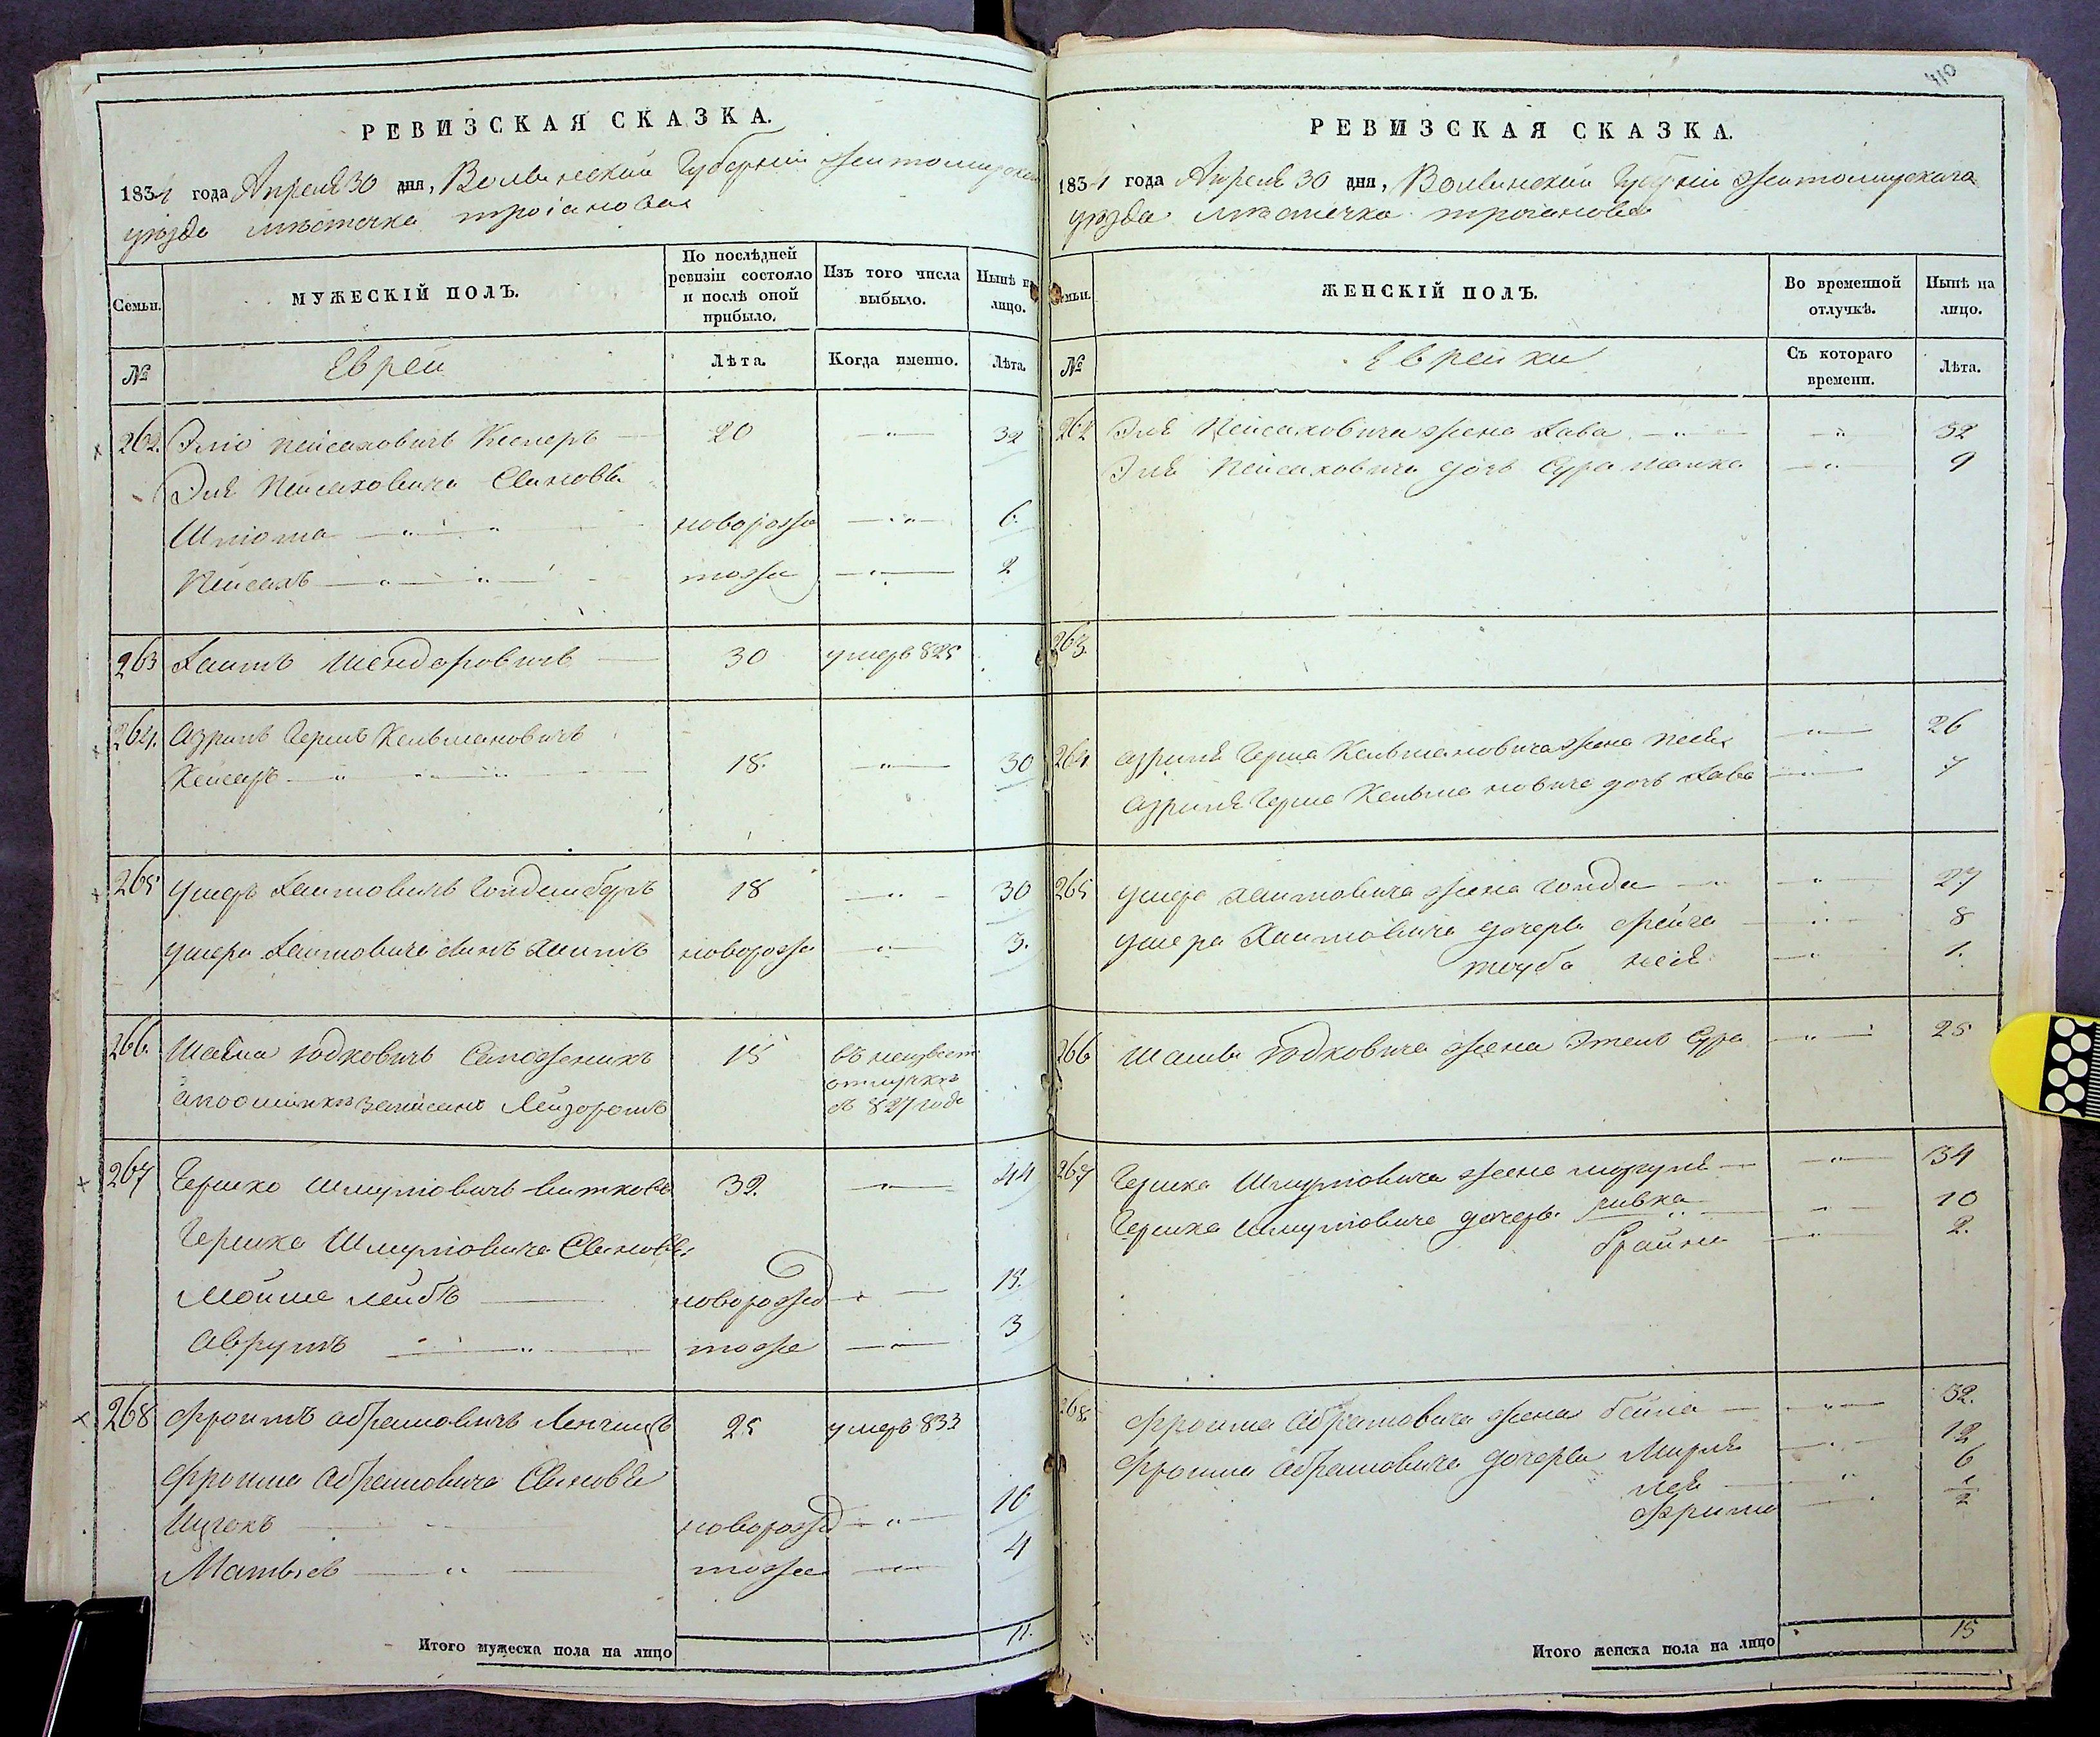 РЕВИЗСКАЯ СКАЗКА.
1834 года Апреля 30 дня, Волынской Губерніи Житомирскаго
уѣзда мѣстечка Троіанова
Семьи.
МУЖЕСКІЙ ПОЛЪ.
По послѣдней ревизіи состояло и послѣ оной прибыло.
Изъ того числа выбыло.
Нынѣ на лицо.
№
Евреи
Лѣта.
Когда именно.
Лѣта.
262. Элio Пейсаховичъ 20 — 32
Эля Пейсаховича Сыновья
Шлiома новорожд — 6.
Пейсахъ тоже — 2
263 Хаимъ Шендоровичъ 30 умеръ 825
264. Азриль Герш Кельмановичъ
Кейсаръ 18. — 30
265 Ушеръ Хаимовичъ Гольденбергъ 18 — 30
Ушера Хаимовича сынъ Хаимъ новорожд — 3.
266. Шавша Юдковичъ Сапожникъ 15 въ неизвест
отлучкѣ
по ошибкѣ записанъ Лейзоромъ съ 827 года
267 Гершко Шмулiовичъ Витковъ 32. — 44
Гершка Шмулiовича Сыновья
Мойше Лейбъ новорожд — 15.
Аврумъ тоже — 3
268 Фроимъ Абрамовичъ 25 умеръ 833
Фроима Абрамовича Сыновья
Ицекъ новорожд — 10
тоже — 4
Итого мужеска пола на лицо 11.
410
РЕВИЗСКАЯ СКАЗКА.
1834 года Апреля 30 дня, Волынской Губерніи Житомирскаго
уѣзда мѣстечка Трояанова
Семьи.
ЖЕНСКІЙ ПОЛЪ.
Во временной отлучкѣ.
Нынѣ на лицо.
№
Еврейки
Съ котораго времени.
Лѣта.
262 Эля Пейсаховича жена Хава — 32
Эля Пейсаховича дочь Сура Малка — 9
263.
264 Азриля Герша Кельмановича жена Песя — 26
Азриля Герша Кельмановича дочь Хава — 7
265 Ушера Хаимовича жена Голда — 27
Ушера Хаимовича дочеры Фейга — 8
Тауба Неся — 1.
266 Шавши Юдковича жена Этель Сура — 25
267 Гершка Шмулiовича жена — 34
Гершка Шмулiовича дочеры Ривка — 10
Брайна — 2.
268. Фроима Абрамовича жена Бейла — 32.
Фроима Абрамовича дочеры Мирля — 12
Лея — 6
Фрима — 1/2
Итого женска пола на лицо 15